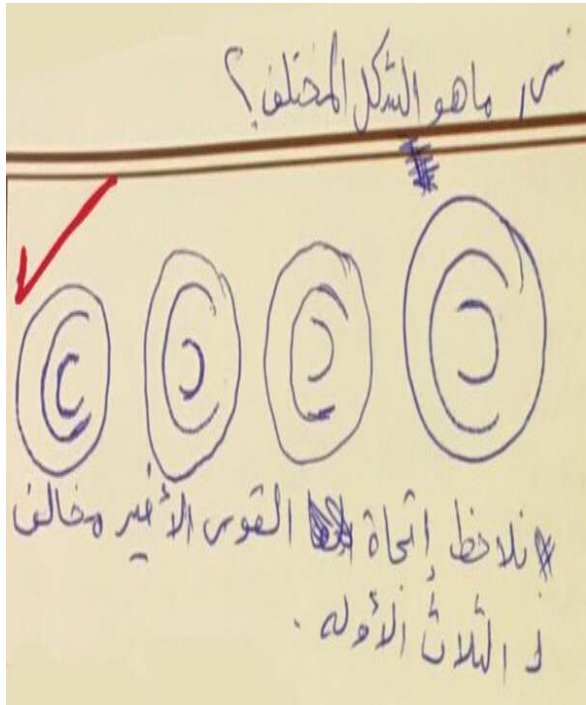 س/ ماهو الشكل المختلف؟
* نلاحظ إتجاة القوس الأخير مخالف
لـ الثلاث الأوله .